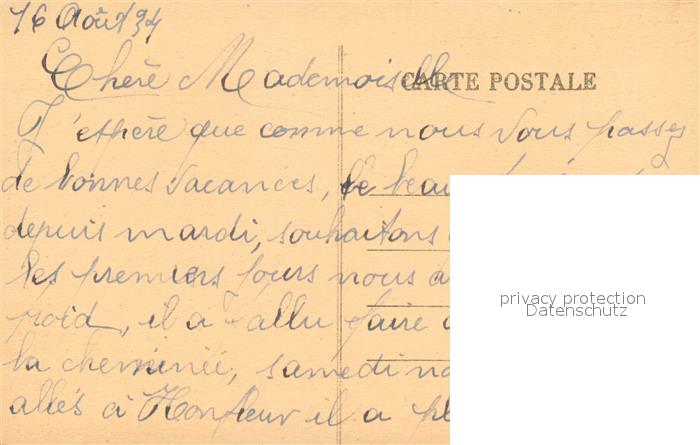 16 Août 34
Chère Mademoiselle
CARTE POSTALE
J'espère que comme nous vous passez
de bonnes vacances, le beau
depuis mardi, souhaitons
les premiers jours nous a
froid, il a fallu faire
la cheminée, samedi no
allés à Honfleur il a pl
privacy protection
Datenschutz